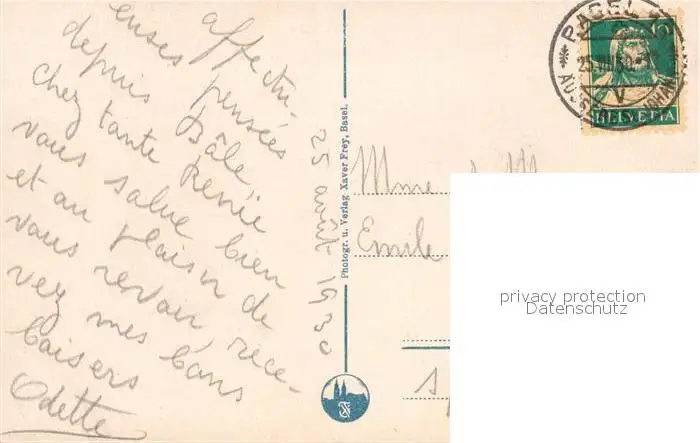 affectu-
euses pensées
depuis Bâle,
chez tante Renée
vous salue bien
et au plaisir de
vous revoir, rece-
vez mes bons
baisers
Odette
25 août 1930
Photogr. u. Verlag Xaver Frey, Basel.
BASEL
V
HELVETIA
Mme
Emile
privacy protection
Datenschutz